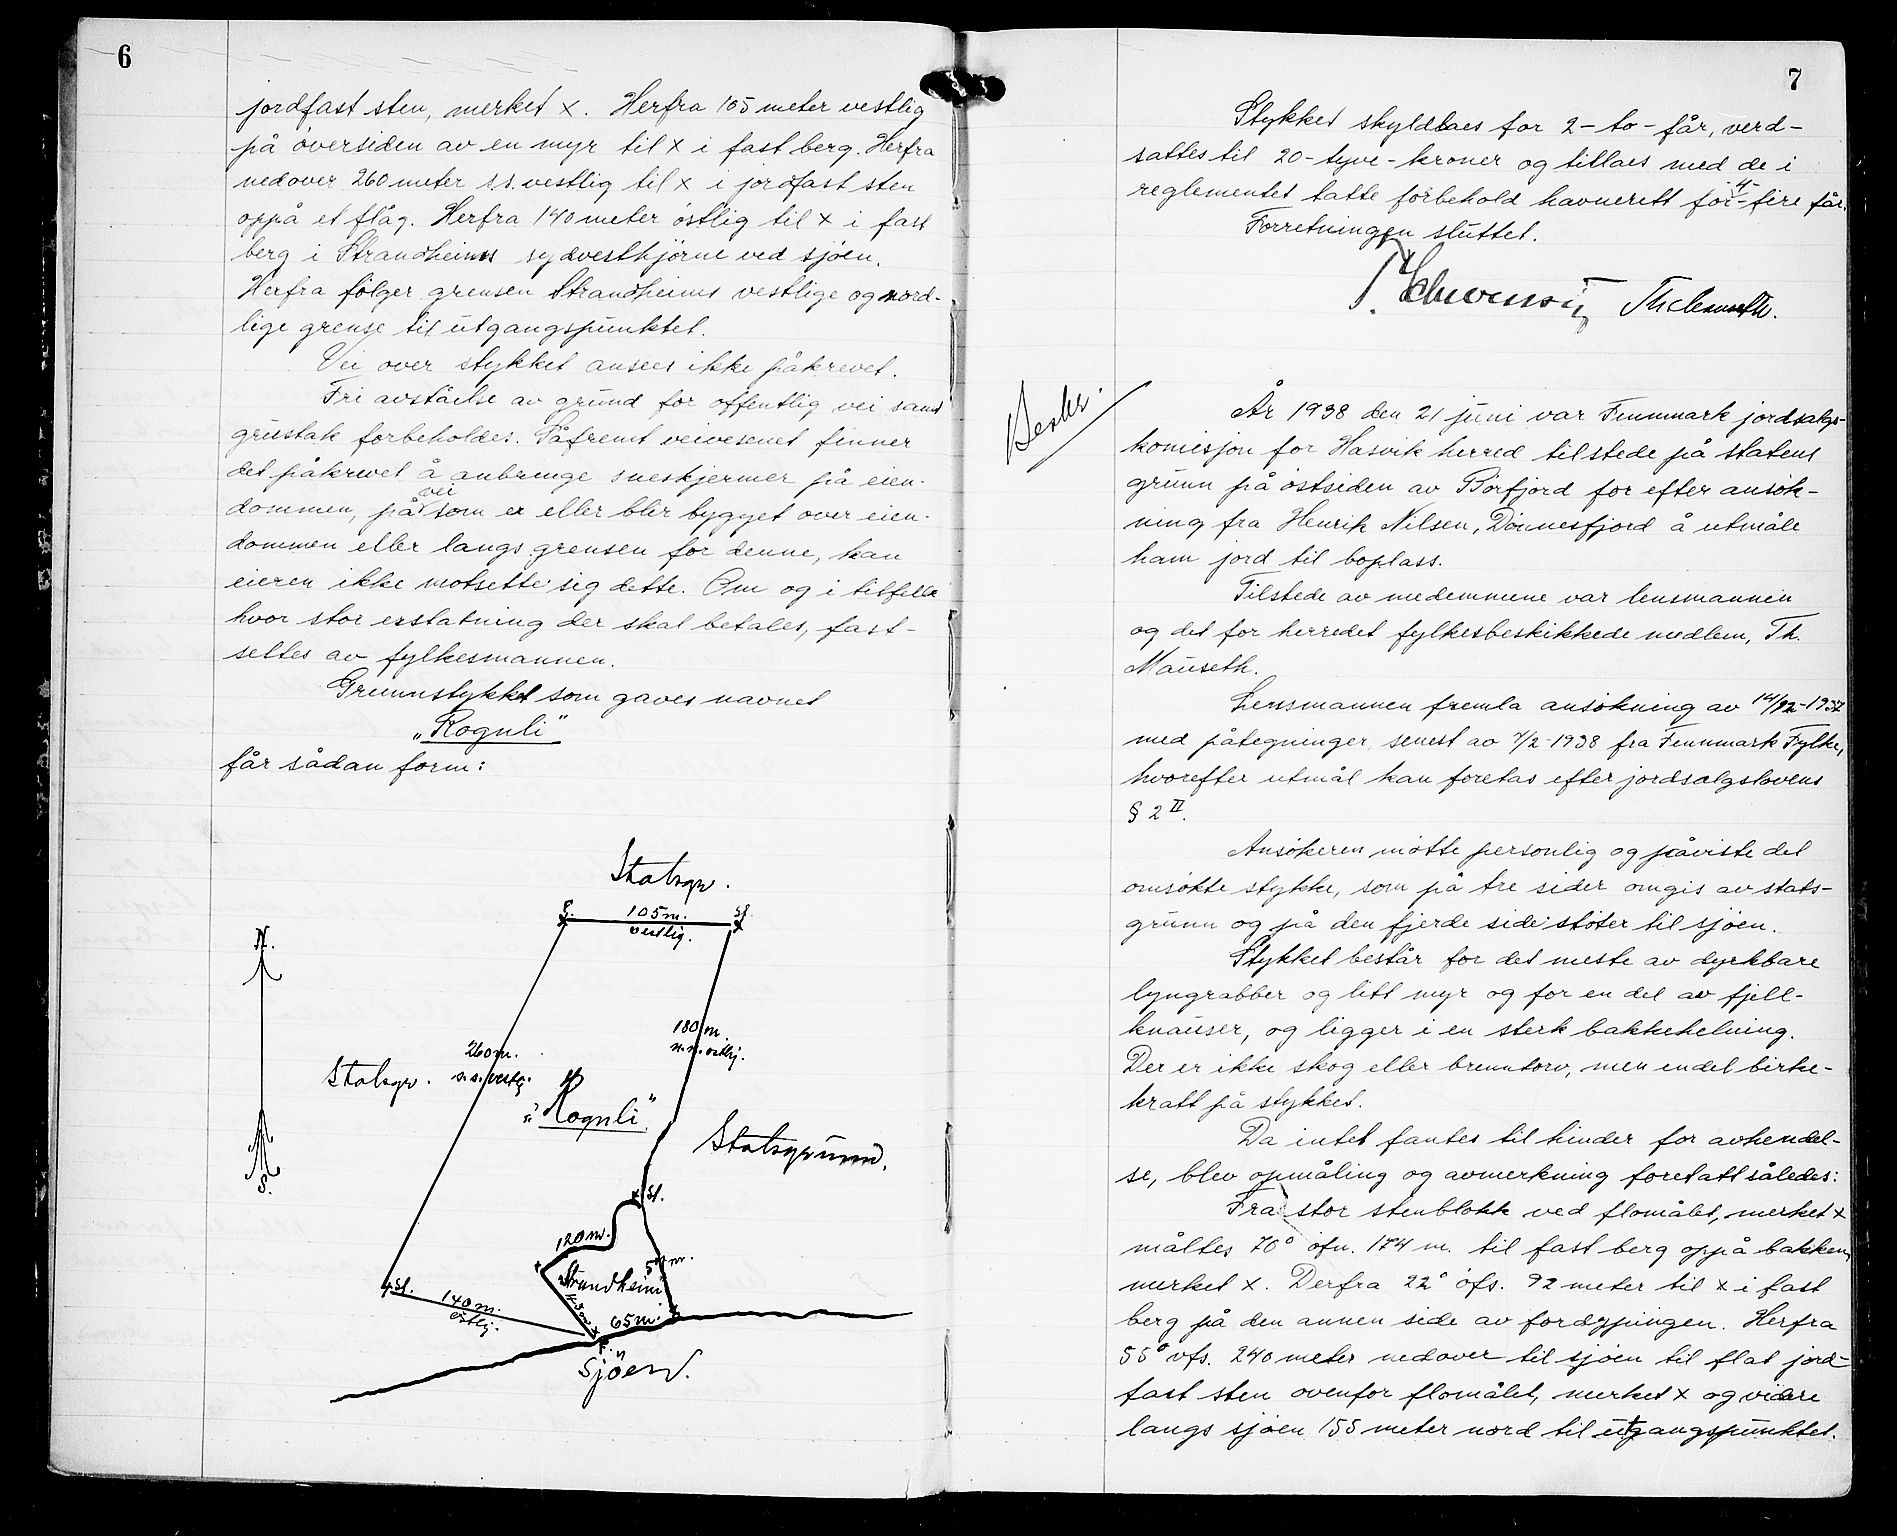 6
jordfast sten, merket x. Herfra 105 meter vestlig
på oversiden av en myr til x i fast berg. Herfra
nedover 260 meter s.s.vestlig til x i jordfast sten
oppå et flåg. Herfra 140 meter østlig til x i fast
berg i Strandheims sydvesthjörne ved sjöen.
Herfra fölger grensen Strandheims vestlige og nord-
lige grense til utgangspunktet.
Vei over stykket ansees ikke påkrevet.
Fri avståelse av grund for offentlig vei samt
grustak forbeholdes. Påfremt veivesenet finner
det påkrevet å anbringe sneskjermer på eien-
dommen, på vei som er eller blir bygget over eien-
dommen eller langs grensen for denne, kan
eieren ikke motsette sig dette. Om og i tilfelle
hvor stor erstatning der skal betales, fast-
settes av fylkesmannen.
Grunnstykket som gaves navnet
„Rognli"
får sådan form:
Statsgr.
F. 105 m. St.
vestlig.
N.
180 m.
n.n.östlig.
260 m.
s.s.vestlig.
Statsgr.
„Rognli"
Statsgrunn.
S.
St.
120 m.
5 m.
Strandheim
St.
140 m.
östlig.
65 m.
F.
Sjöen.
7
Stykket skyldtaes for 2-to-får, verd-
sattes til 20-tyve-kroner og tillaes med de i
reglementet tatte forbehold havnerett for -4- fire får.
Forretningen sluttet.
Th Mauseth.
År 1938 den 21 juni var Finnmark jordsalgs-
komisjon for Hasvik herred tilstede på statens
grunn på östsiden av Börfjord for efter ansök-
ning fra Henrik Nilsen, Dönnesfjord å utmåle
ham jord til boplass.
Tilstede av medemmene var lensmannen
og det for herredet fylkesbeskikkede medlem, Th.
Mauseth.
Lensmannen fremla ansökning av 14/12-1937
med påtegninger, senest av 7/2-1938 fra Finnmark Fylke,
hvorefter utmål kan foretas efter jordsalgslovens
§ 2 II.
Ansökeren mötte personlig og påviste det
omsökte stykke, som på tre sider omgis av stats-
grunn og på den fjerde side stöter til sjöen.
Stykket består for det meste av dyrkbare
lyngrabber og litt myr og for en del av fjell-
knauser, og ligger i en sterk bakkehelning.
Der er ikke skog eller brenntorv, men endel birke-
kratt på stykket.
Da intet fantes til hinder for avhendel-
se, blev opmåling og avmerkning foretatt således:
Fra stor stenblokk ved flomålet, merket x
måltes 70° öfn. 174 m. til fast berg oppå bakken,
merket x. Derfra 22° öfs. 92 meter til x i fast
berg på den annen side av fordypningen. Herfra
55° vfs. 240 meter nedover til sjöen til flat jord-
fast sten ovenfor flomålet, merket x og videre
langs sjöen 155 meter nord til utgangspunktet.